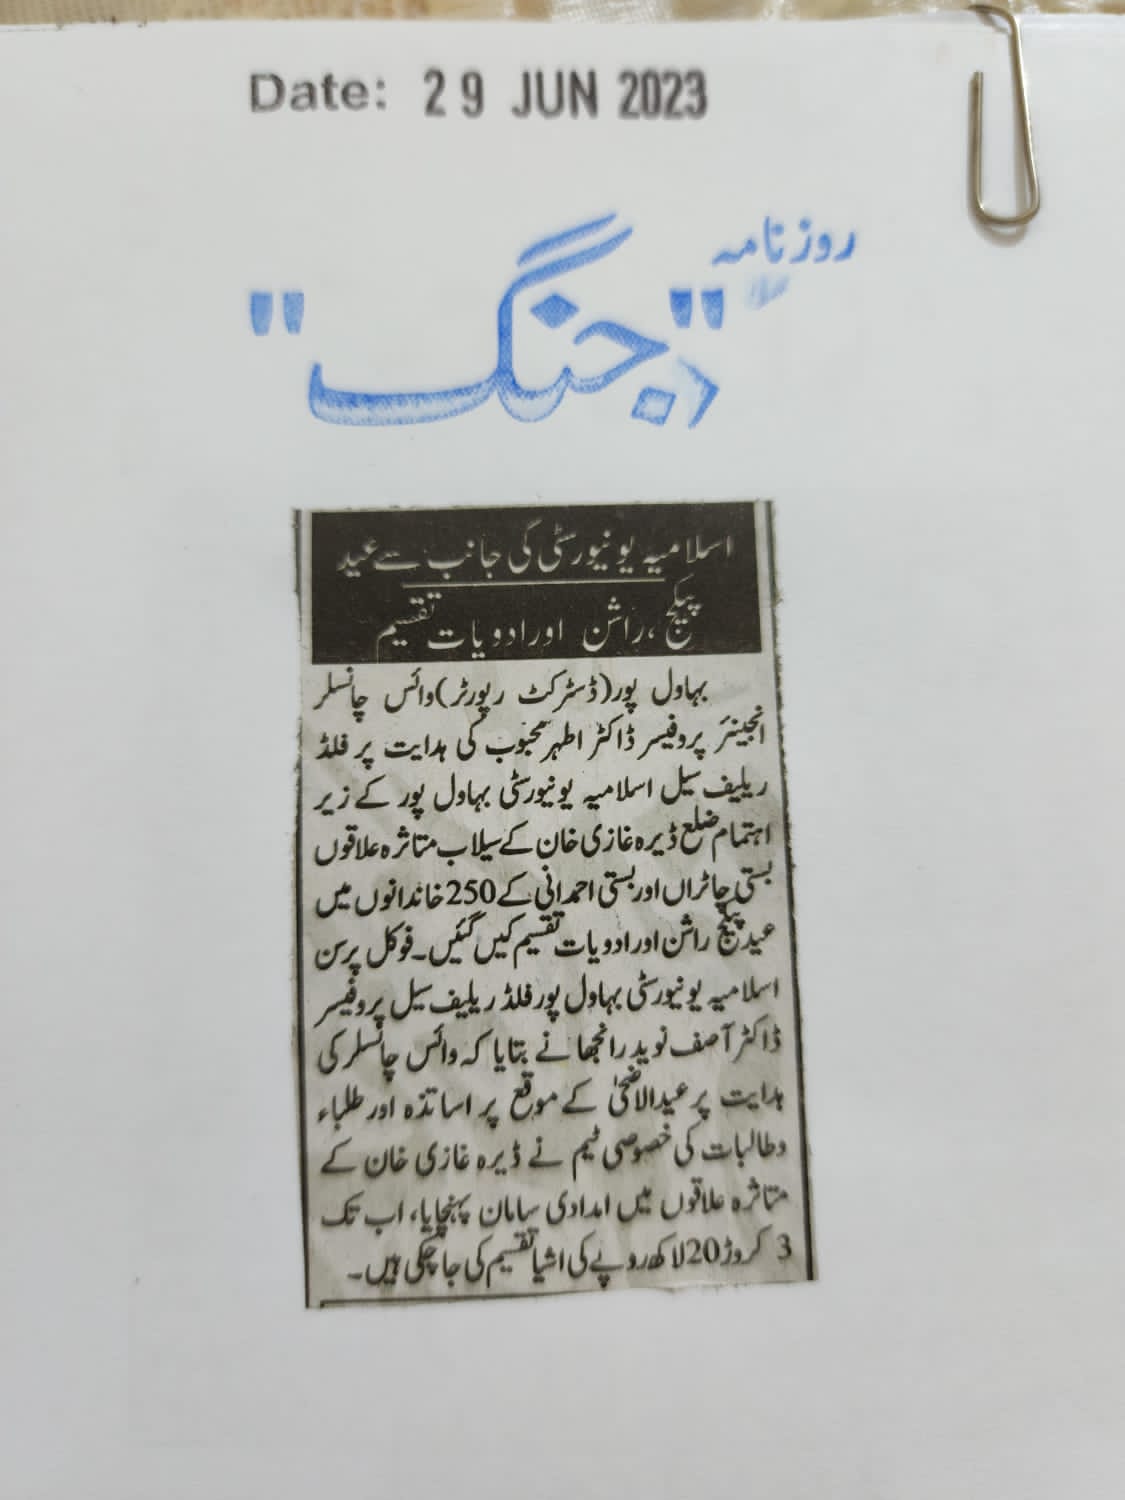 Date: 29 JUN 2023
روزنامہ
"جنگ"
اسلامیہ یونیورسٹی کی جانب سے عید
پیکج ،راشن اور ادویات تقسیم
بہاول پور(ڈسٹرکٹ رپورٹر)وائس چانسلر
انجینئر پروفیسر ڈاکٹر اطہر محبوب کی ہدایت پر فلڈ
ریلیف سیل اسلامیہ یونیورسٹی بہاول پور کے زیر
اہتمام ضلع ڈیرہ غازی خان کے سیلاب متاثرہ علاقوں
بستی چاٹراں اور بستی احمدانی کے 250 خاندانوں میں
عید پیکج راشن اور ادویات تقسیم کیں گئیں۔ فوکل پرسن
اسلامیہ یونیورسٹی بہاول پور فلڈ ریلیف سیل پروفیسر
ڈاکٹر آصف نوید رانجھا نے بتایا کہ وائس چانسلر کی
ہدایت پر عیدالاضحیٰ کے موقع پر اساتذہ اور طلباء
وطالبات کی خصوصی ٹیم نے ڈیرہ غازی خان کے
متاثرہ علاقوں میں امدادی سامان پہنچایا، اب تک
3 کروڑ 20 لاکھ روپے کی اشیا تقسیم کی جا چکی ہیں۔